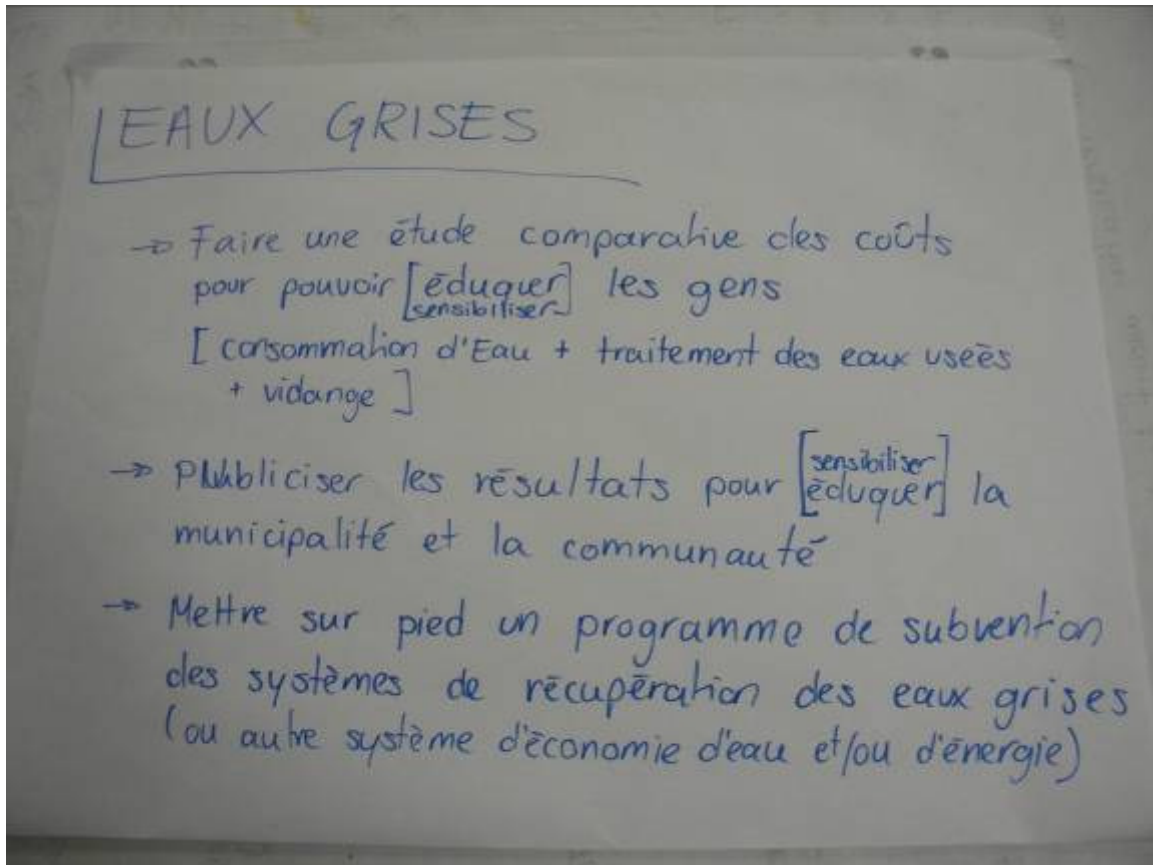 EAUX GRISES
→ Faire une étude comparative des coûts
pour pouvoir [éduquer les gens
sensibiliser]
[consommation d'Eau + traitement des eaux useés
+ vidange]
→ Publiciser les résultats pour [sensibiliser
éduquer] la
municipalité et la communauté
→ Mettre sur pied un programme de subvention
des systèmes de récupération des eaux grises
(ou autre système d'économie d'eau et/ou d'énergie)